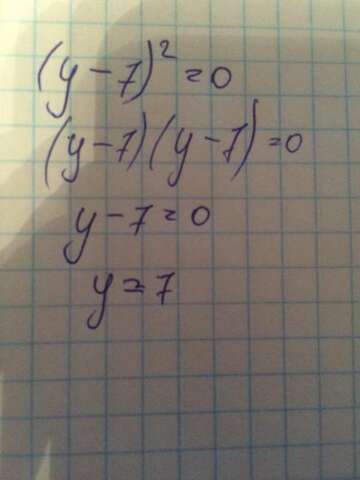 (y - 7)² = 0
(y - 7)(y - 7) = 0
y - 7 = 0
y = 7